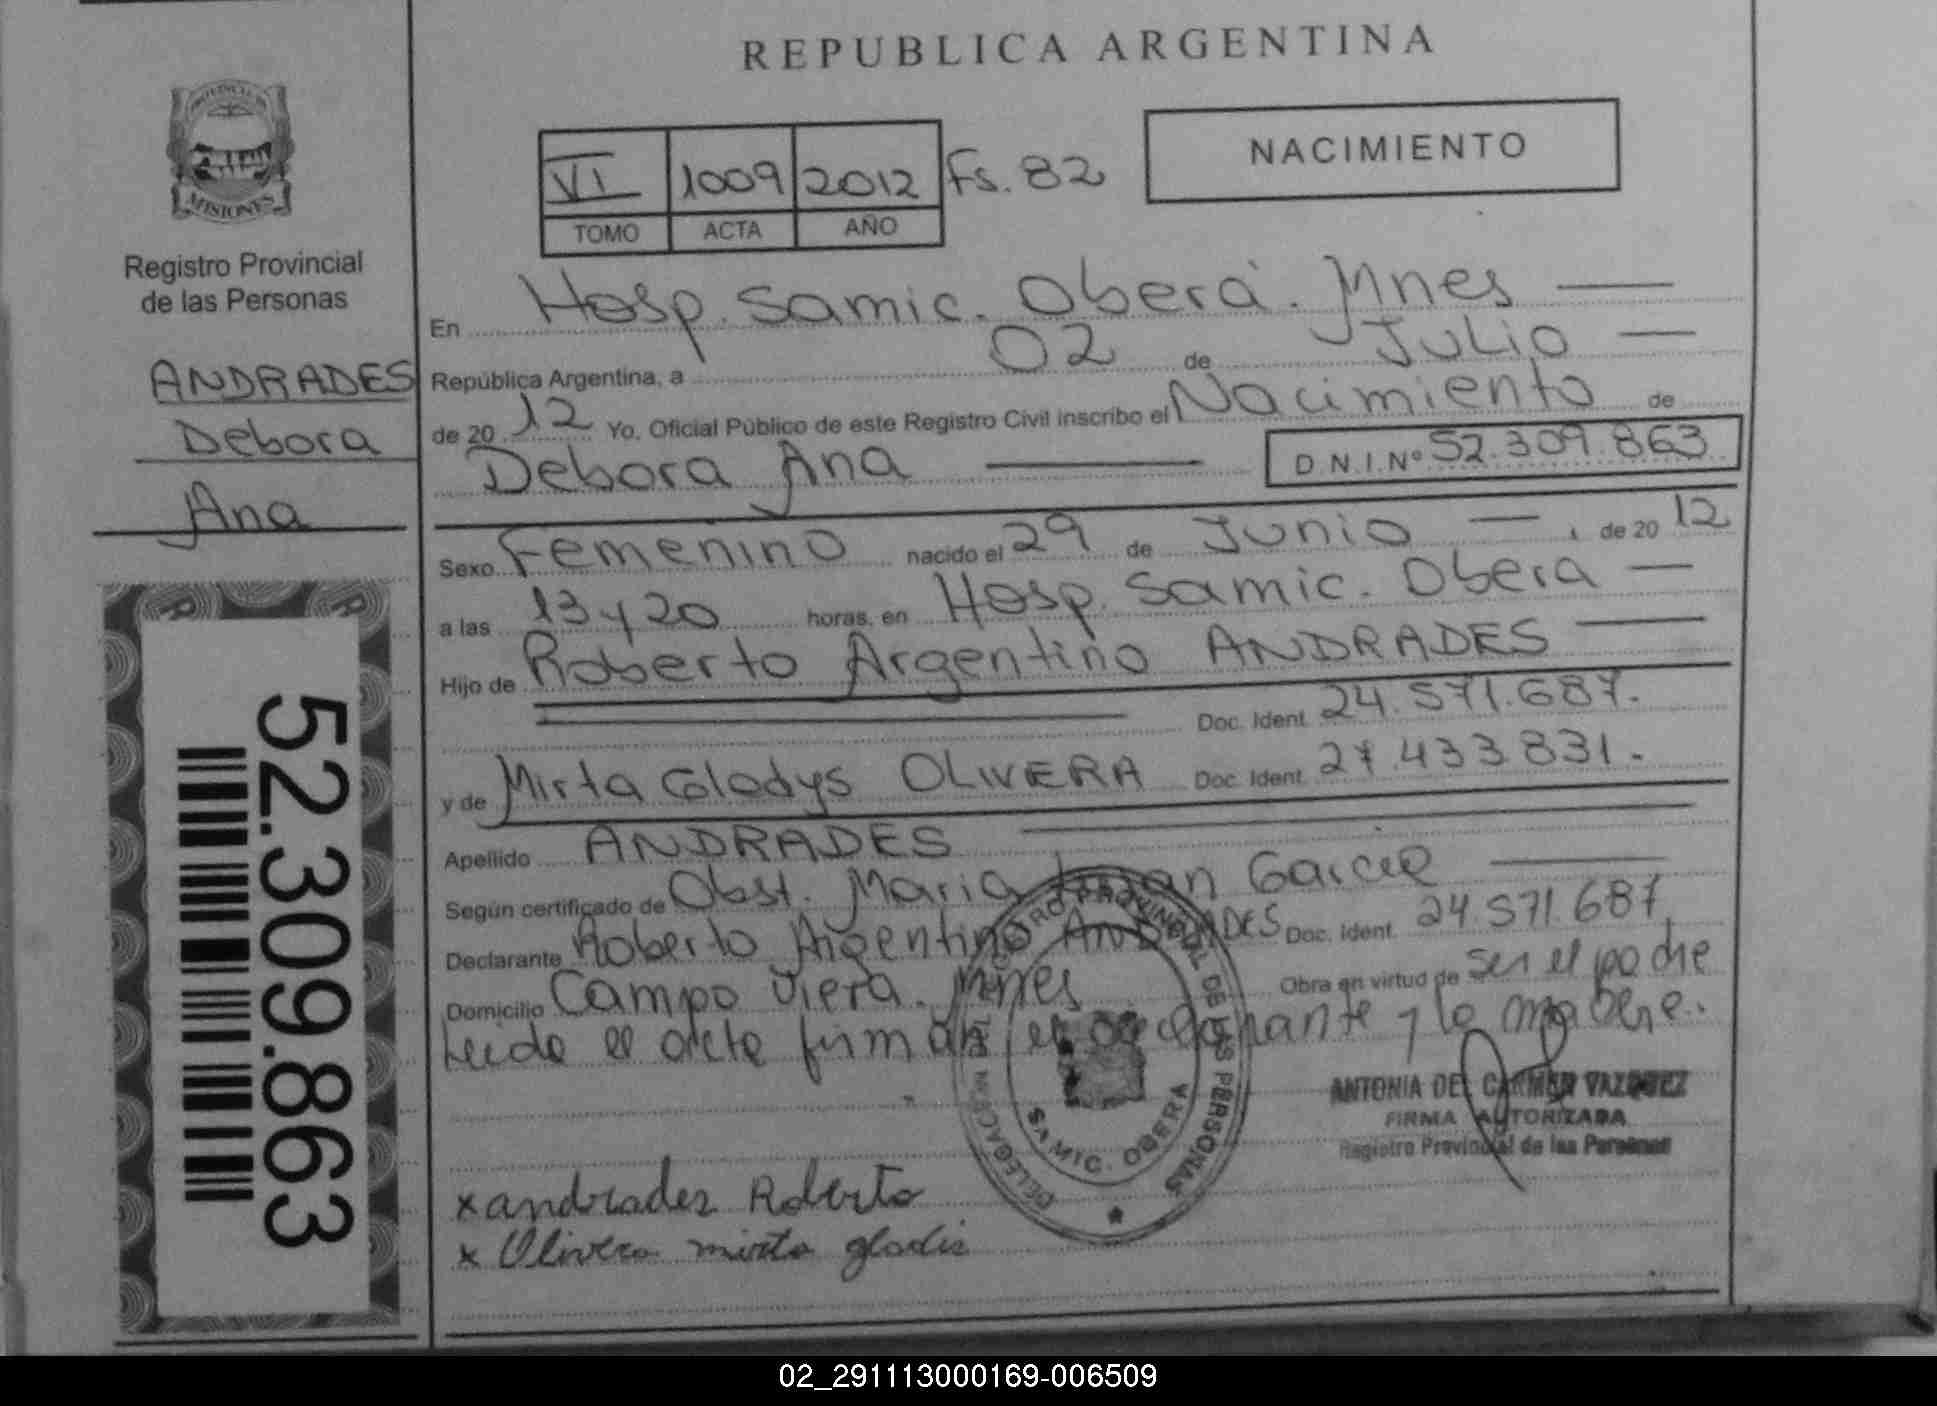 REPUBLICA ARGENTINA
PROVINCIA DE
MISIONES
Registro Provincial
de las Personas
ANDRADES
Debora
Ana
52.309.863
VI 1009 2012 Fs. 82
TOMO ACTA AÑO
NACIMIENTO
En Hosp. Samic. Oberá. Mnes
República Argentina, a 02 de Julio
de 20 12 Yo, Oficial Público de este Registro Civil inscribo el Nacimiento de
Debora Ana D.N.I.Nº 52.309.863
Sexo Femenino nacido el 29 de Junio de 20 12
a las 13 y 20 horas, en Hosp. Samic. Obera
Hijo de Roberto Argentino ANDRADES
Doc. Ident. 24.571.687.
y de Mirta Gladys OLIVERA Doc. Ident. 27.433.831.
Apellido ANDRADES
Según certificado de Obst. Maria Garcia
Declarante Roberto Argentino ANDRADES Doc. Ident. 24.571.687
Domicilio Campo Viera. Mnes Obra en virtud de ser el padre
Leida el acta firman el declarante y la madre.
REGISTRO PROVINCIAL DE LAS PERSONAS
DELEGACION
SAMIC. OBERA
ANTONIA DEL CARMEN VAZQUEZ
FIRMA AUTORIZADA
Registro Provincial de las Personas
x andrades Roberto
x Olivera mirta gladis
02_291113000169-006509